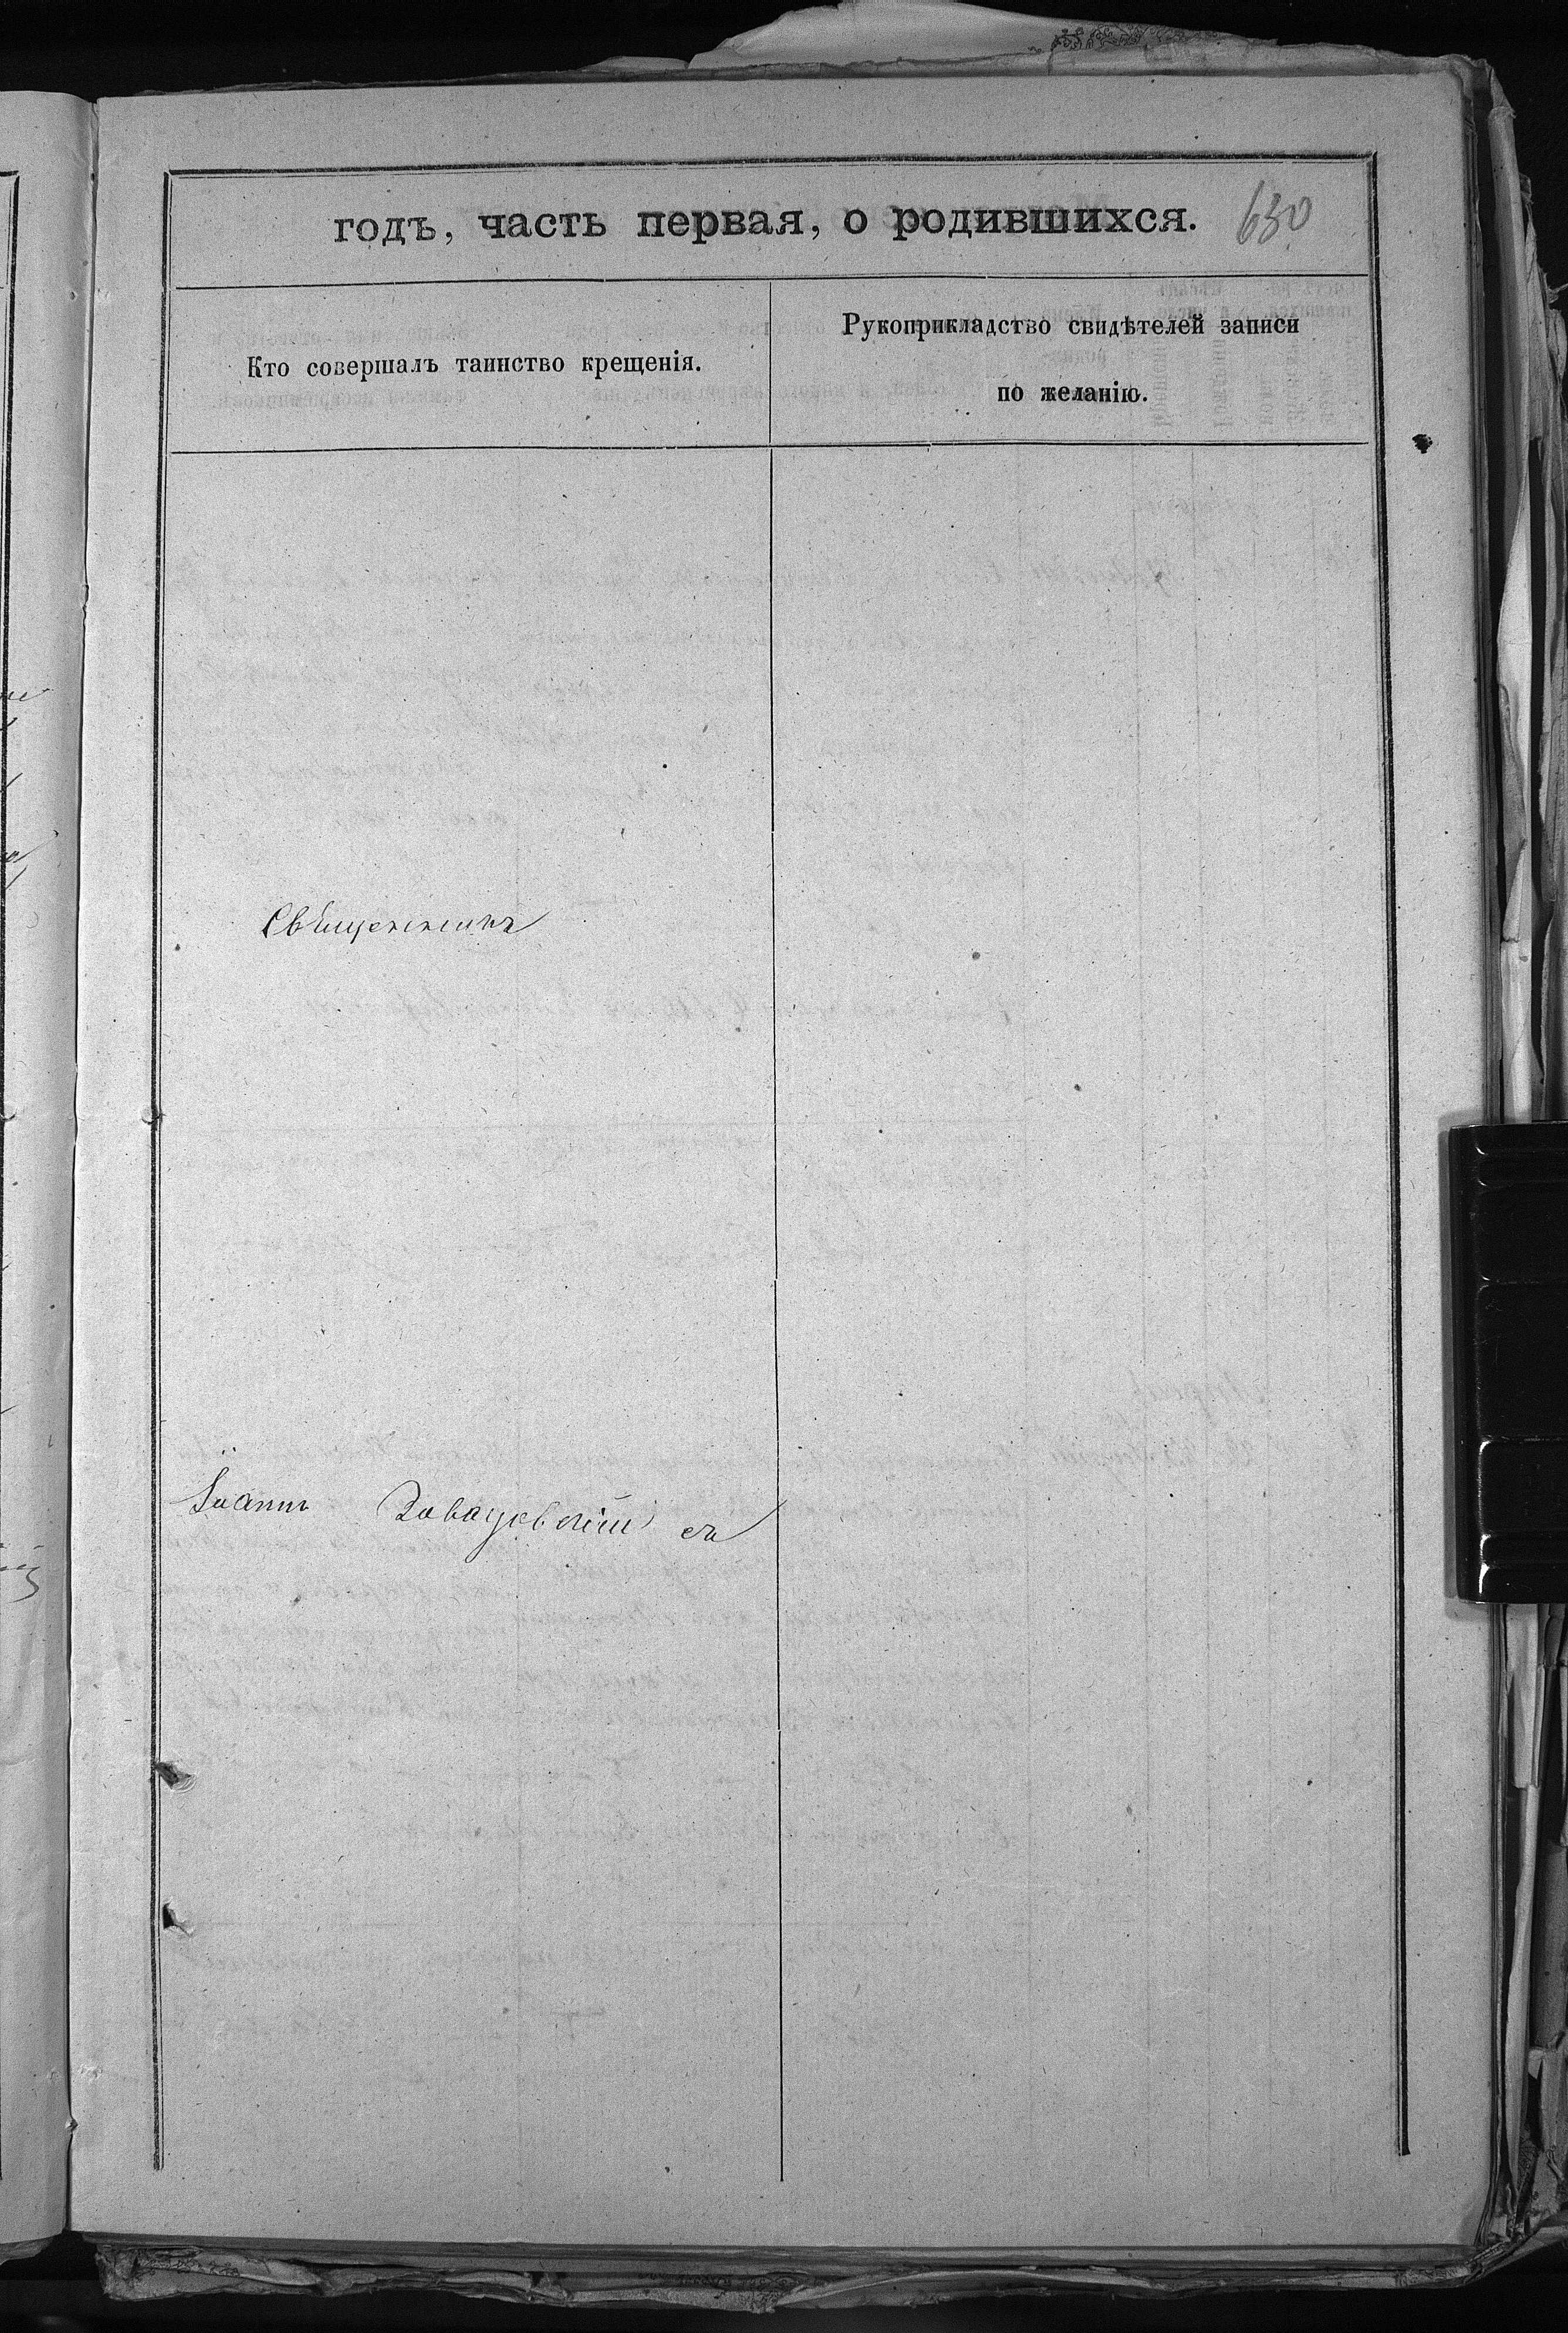 годъ, часть первая, о родившихся. 630
Кто совершалъ таинство крещенія.
Рукоприкладство свидѣтелей записи
по желанію.
Священникъ
Іоаннъ съ